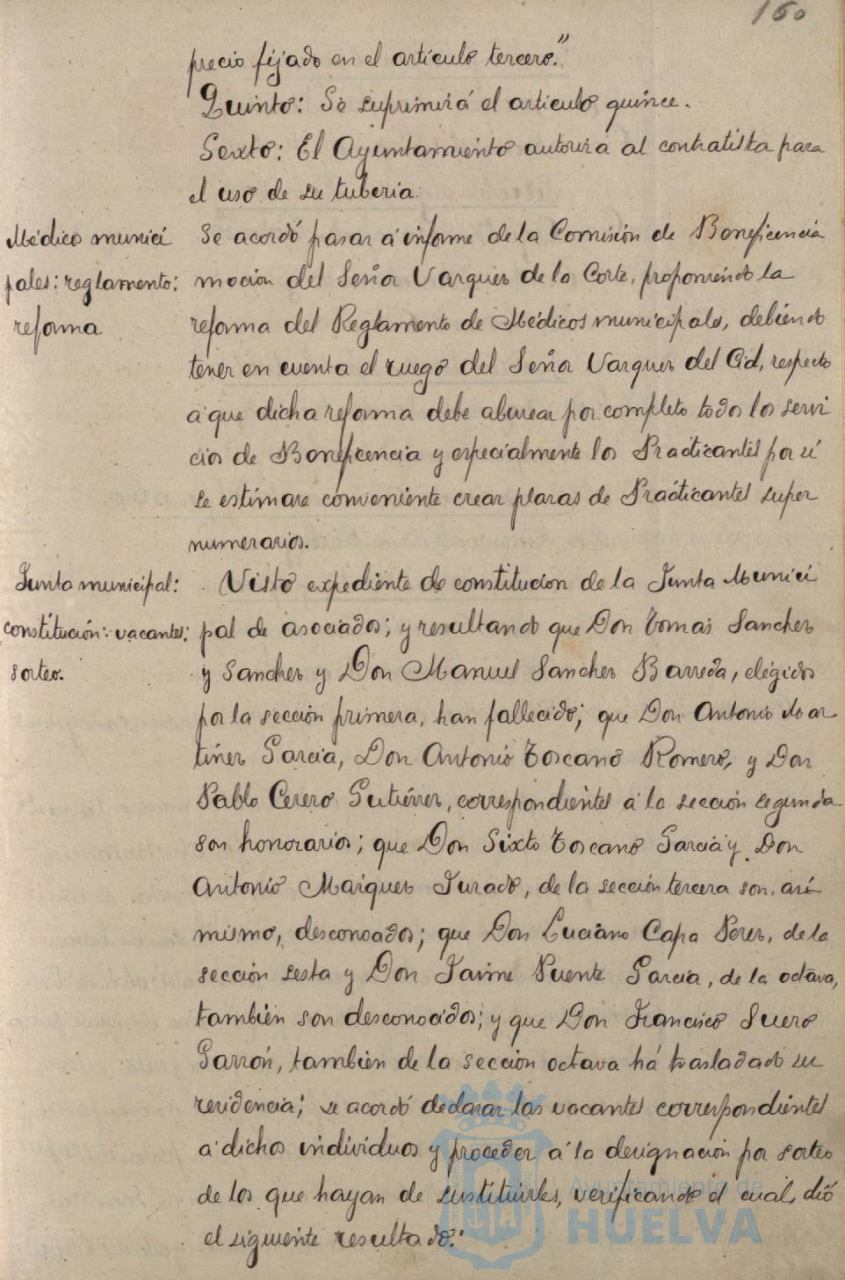 150
precio fijado en el artículo tercero."
Quinto: Se suprimirá el artículo quince.
Sexto: El Ayuntamiento autoriza al contratista para
el uso de su tubería.
Médico munici
pales: reglamento:
reforma
Se acordó pasar á informe de la Comisión de Beneficencia
moción del Señor Vazquez de la Corte, proponiendo la
reforma del Reglamento de Médicos municipales, debiendo
tener en cuenta el ruego del Señor Vazquez del Cid, respecto
a que dicha reforma debe abarcar por completo todos los servi
cios de Beneficencia y especialmente los Practicantes por si
se estimare conveniente crear plazas de Prácticantes super
numerarios.
Junta municipal:
constitución: vacantes:
sorteo.
Visto expediente de constitucion de la Junta Munici
pal de asociados; y resultando que Don Tomás Sanchez
y Sanchez y Don Manuel Sanchez Barreda, elegidos
por la sección primera, han fallecido; que Don Antonio Mar
tínez García, Don Antonio Toscano Romero, y Don
Pablo Cerero Gutiérrez, correspondientes á la sección segunda
son honorarios; que Don Sixto Toscano García y Don
Antonio Maiquez Jurado, de la sección tercera son, asi
mismo, desconocidos; que Don Luciano Capa Perez, de la
sección sesta y Don Jaime Puente García, de la octava,
también son desconocidos; y que Don Francisco Suero
Garrón, también de la sección octava há trasladado su
residencia; se acordó declarar las vacantes correspondientes
a dichos individuos y proceder á la designación por sorteo
de los que hayan de sustituirles, verificando el cual, dió
el siguiente resultado:
Ayuntamiento de
HUELVA